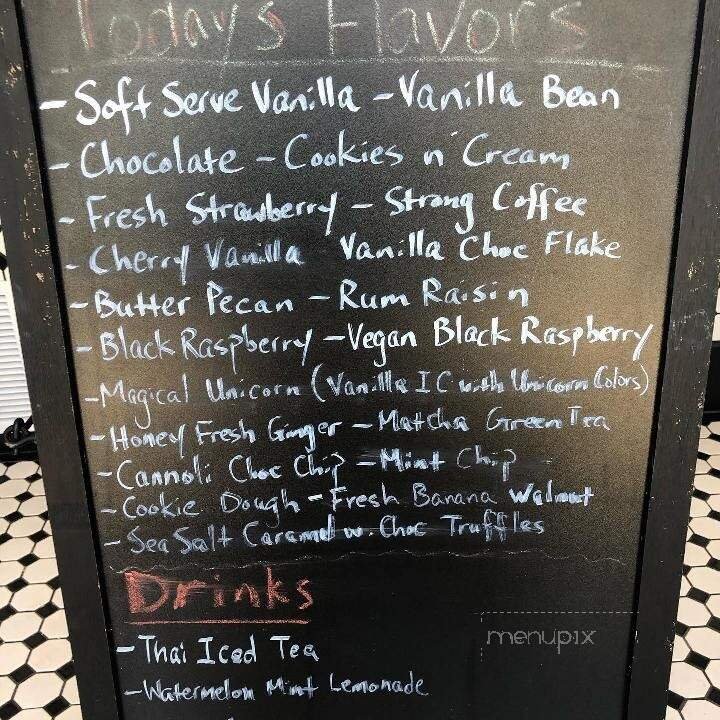 Todays Flavors
- Soft Serve Vanilla - Vanilla Bean
- Chocolate - Cookies n' Cream
- Fresh Strawberry - Strong Coffee
- Cherry Vanilla Vanilla Choc Flake
- Butter Pecan - Rum Raisin
- Black Raspberry - Vegan Black Raspberry
- Magical Unicorn (Vanilla IC with Unicorn Colors)
- Honey Fresh Ginger - Matcha Green Tea
- Cannoli Choc Chip - Mint Chip
- Cookie Dough - Fresh Banana Walnut
- Sea Salt Caramel w. Choc Truffles
Drinks
- Thai Iced Tea
menupix
- Watermelon Mint Lemonade